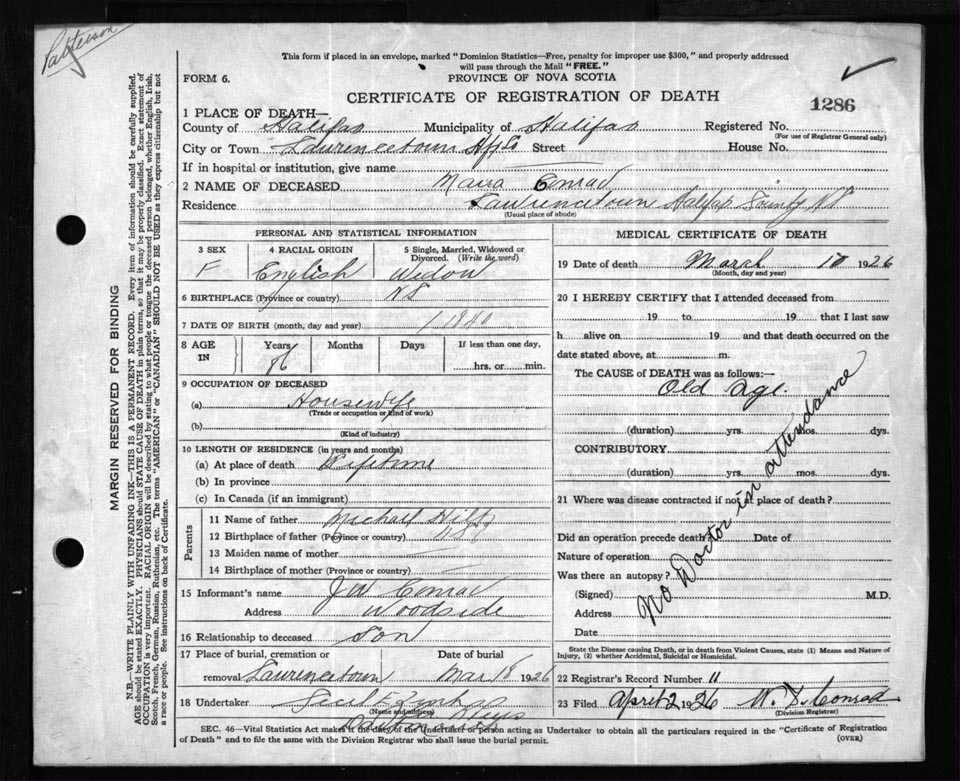 Patterson
This form if placed in an envelope, marked "Dominion Statistics—Free, penalty for improper use $300," and properly addressed
will pass through the Mail "FREE."
FORM 6.
PROVINCE OF NOVA SCOTIA
CERTIFICATE OF REGISTRATION OF DEATH
1286
1 PLACE OF DEATH—
County of Halifax Municipality of Halifax Registered No.
(For use of Registrar General only)
City or Town Lawrencetown Hfx Co Street House No.
If in hospital or institution, give name
2 NAME OF DECEASED Maria Conrad
Residence Lawrencetown Halifax County NS
(Usual place of abode)
PERSONAL AND STATISTICAL INFORMATION
3 SEX 4 RACIAL ORIGIN 5 Single, Married, Widowed or
Divorced. (Write the word)
F English Widow
6 BIRTHPLACE (Province or country) NS
7 DATE OF BIRTH (month, day and year) 1840
8 AGE IN Years Months Days If less than one day,
86 hrs. or min.
9 OCCUPATION OF DECEASED
(a) Housewife
(Trade or occupation or kind of work)
(b)
(Kind of industry)
10 LENGTH OF RESIDENCE (in years and months)
(a) At place of death Lifetime
(b) In province
(c) In Canada (if an immigrant)
Parents
11 Name of father Michael Hiltz
12 Birthplace of father (Province or country) NS
13 Maiden name of mother —
14 Birthplace of mother (Province or country) —
15 Informant's name J W Conrad
Address Woodside
16 Relationship to deceased Son
17 Place of burial, cremation or Date of burial
removal Lawrencetown Mar 18 1926
18 Undertaker
(Name and address)
MEDICAL CERTIFICATE OF DEATH
19 Date of death March 1926
(Month, day and year)
20 I HEREBY CERTIFY that I attended deceased from
19 to 19 that I last saw
h alive on 19 and that death occurred on the
date stated above, at m.
The CAUSE of DEATH was as follows:—
Old Age.
(duration) yrs. mos. dys.
CONTRIBUTORY
(duration) yrs. mos. dys.
21 Where was disease contracted if not at place of death?
Did an operation precede death? Date of
Nature of operation
Was there an autopsy?
(Signed) M.D.
Address
Date
No Doctor in attendance
State the Disease causing Death, or in death from Violent Causes, state (1) Means and Nature of
Injury, (2) whether Accidental, Suicidal or Homicidal.
22 Registrar's Record Number 11
23 Filed April 2 1926 W. D. Conrad
(Division Registrar)
SEC. 46—Vital Statistics Act makes it the duty of the Undertaker or person acting as Undertaker to obtain all the particulars required in the "Certificate of Registration
of Death" and to file the same with the Division Registrar who shall issue the burial permit.
(OVER)
MARGIN RESERVED FOR BINDING
N.B.—WRITE PLAINLY WITH UNFADING INK—THIS IS A PERMANENT RECORD. Every item of information should be carefully supplied.
AGE should be stated EXACTLY. PHYSICIANS should STATE CAUSE OF DEATH in plain terms, so that it may be properly classified. Exact statement of
OCCUPATION is very important. RACIAL ORIGIN will be described by stating to what people or tongue the deceased person belonged, whether English, Irish,
Scotch, French, German, Russian, Ruthenian, etc. The terms "AMERICAN" or "CANADIAN" SHOULD NOT BE USED as they express citizenship but not
a race or people. See instructions on back of Certificate.